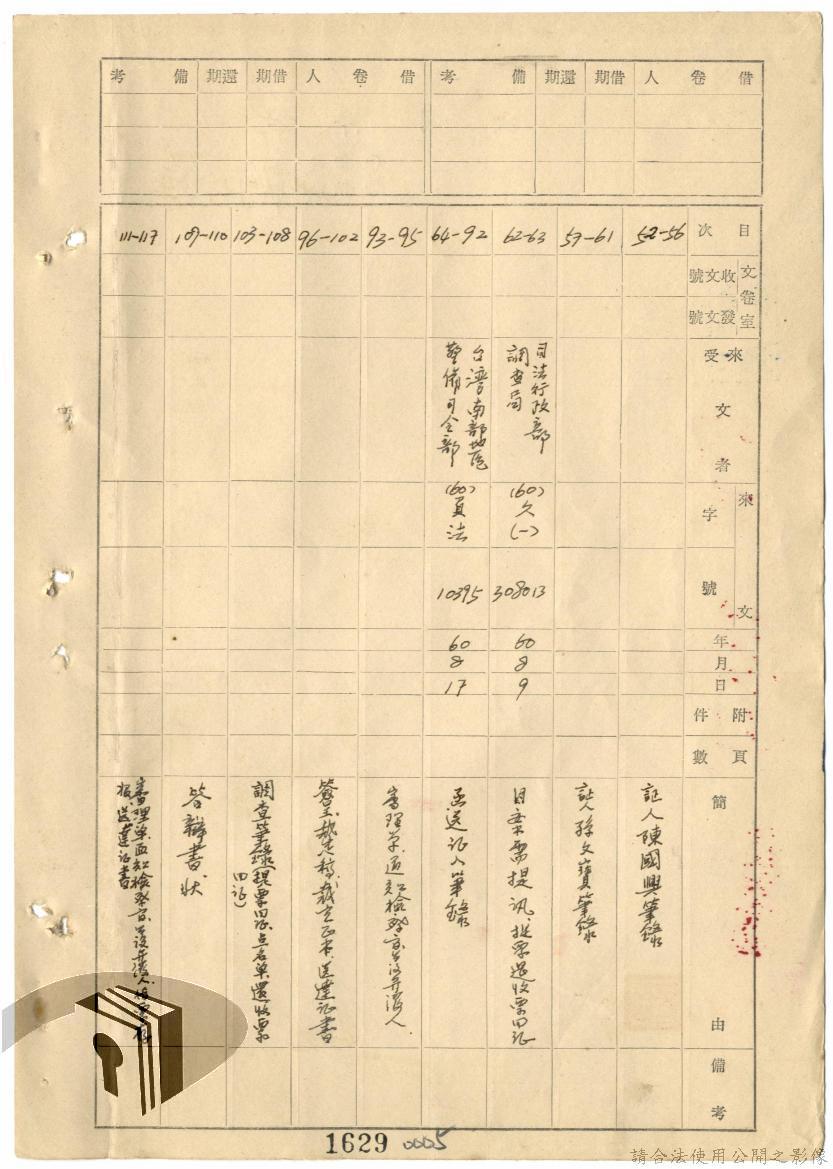 借卷人 借期 還期 備考 借卷人 借期 還期 備考
目次
文卷室 收文號 發文號
來受文者
來文 字號
年月日
附件
頁數
簡由
備考
52-56
証人陳國興筆錄
57-61
証人孫文寶筆錄
62-63
司法行政部
調查局
(60)
欠
(一)
308013
60
8
9
因案需提訊、提票還收票回証
64-92
台灣南部地區
警備司令部
(60)
員法
10395
60
8
17
函送証人筆錄
93-95
審理單通知檢察官公設弁護人
96-102
簽呈裁定稿裁定正本送達証書
103-108
調查筆錄(提票回証点名單還收票
回証)
109-110
答辯書狀
111-117
審理單通知檢察官公設弁護人
送達証書
1629 0005
請合法使用公開之影像